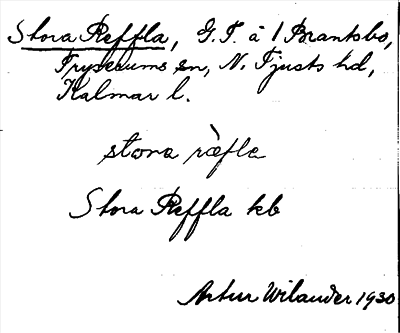 Stora Reffla, G.T. å 1 Branksbo,
Tryserums sn, N. Tjusts hd,
Kalmar l.
stora ræ̀fla
Stora Reffla kb
Artur Wilander 1930